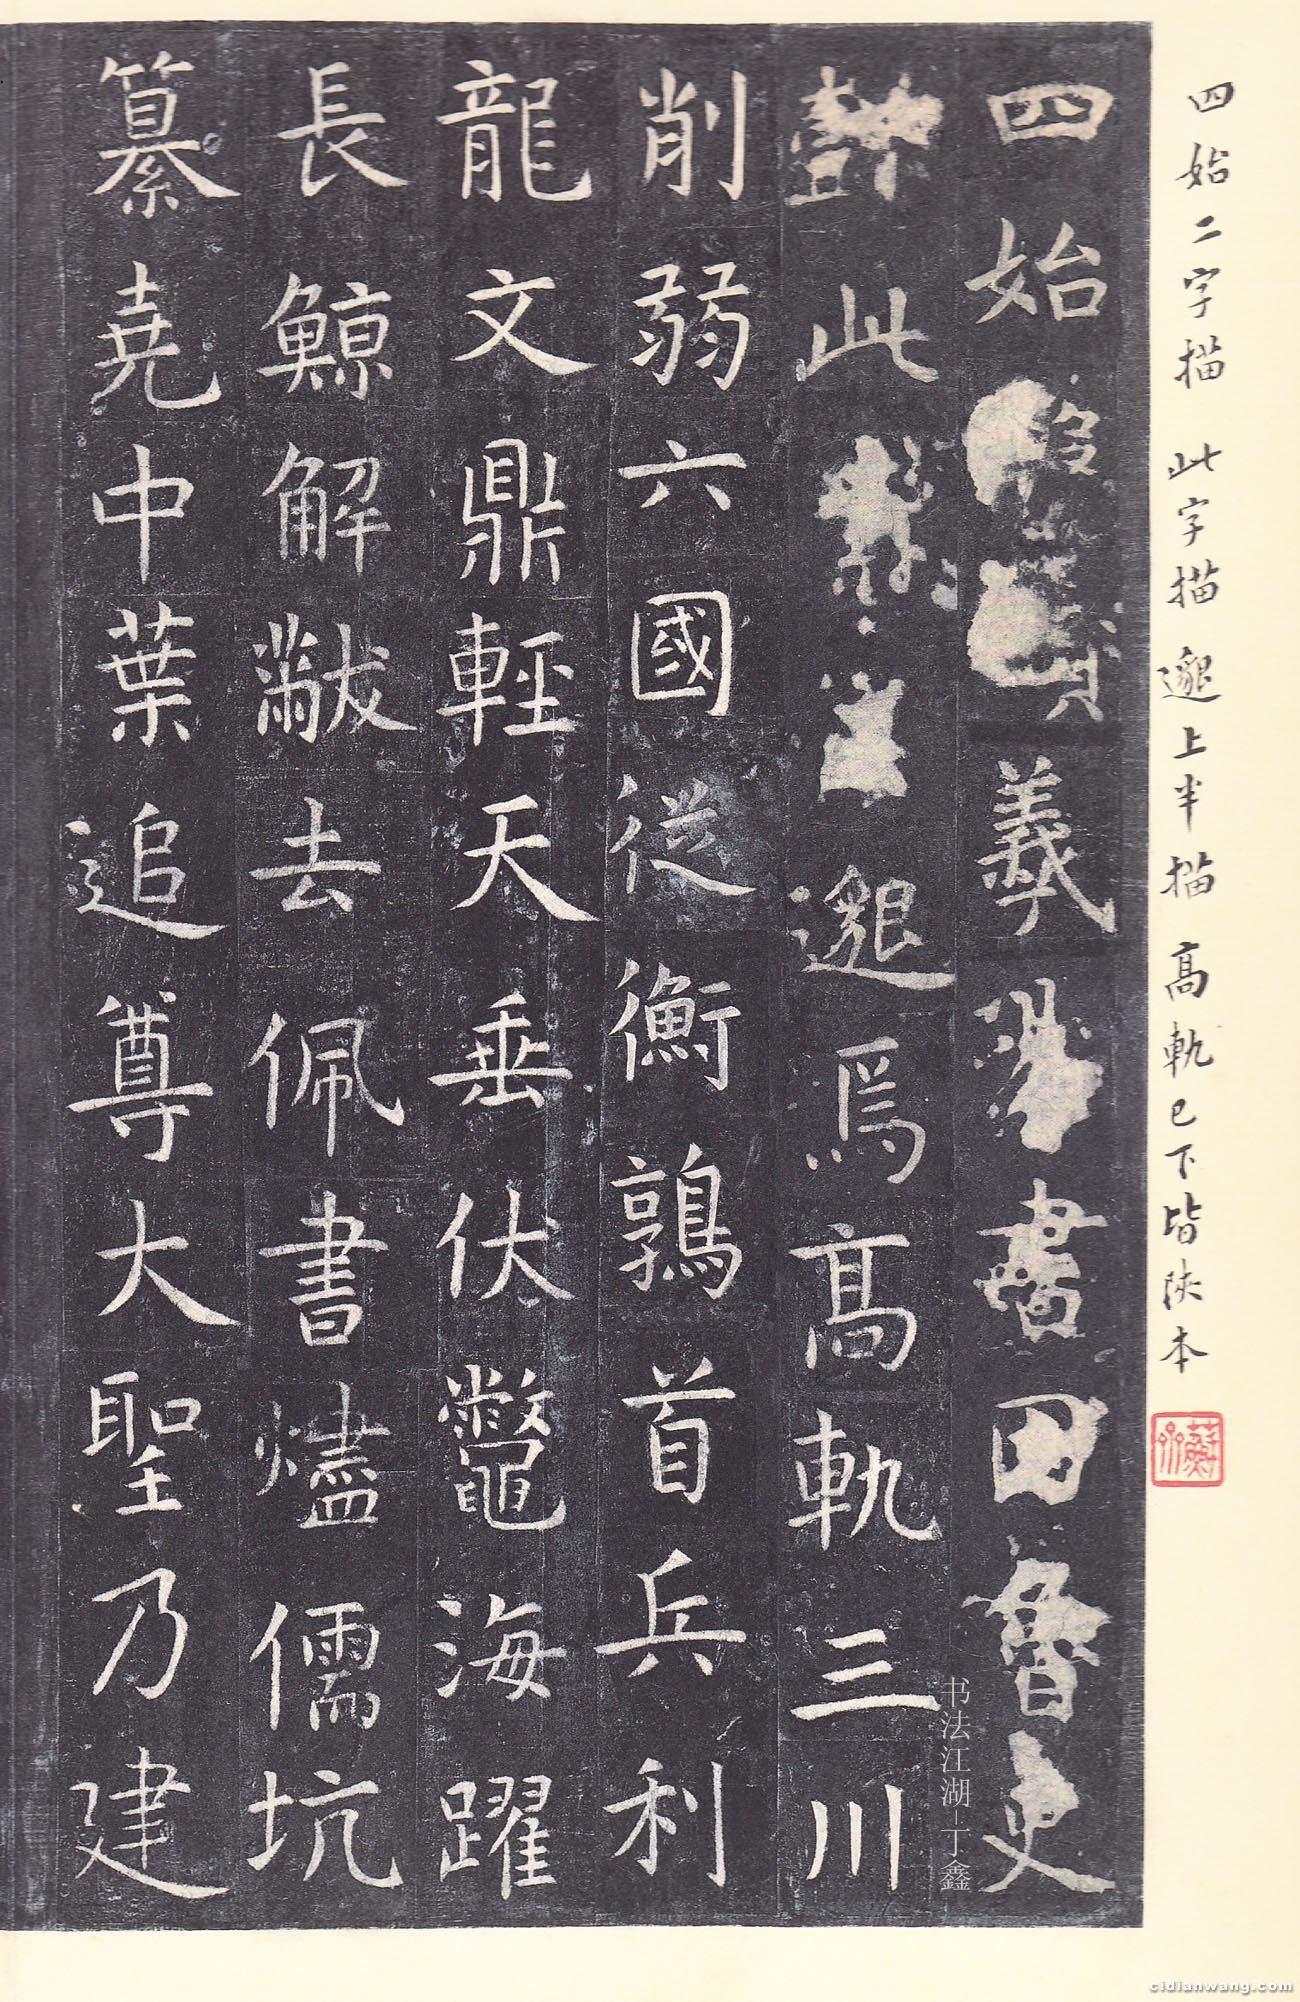 四始二字描 此字描 邈上半描 高軌已下皆陝本
四始
羲
書
魯史
此
邈焉高軌三川
削弱六國從衡鶉首兵利
龍文鼎輕天垂伏鼈海躍
長鯨解黻去佩書燼儒坑
纂堯中葉追尊大聖乃建
书法江湖-丁鑫
cidianwang.com